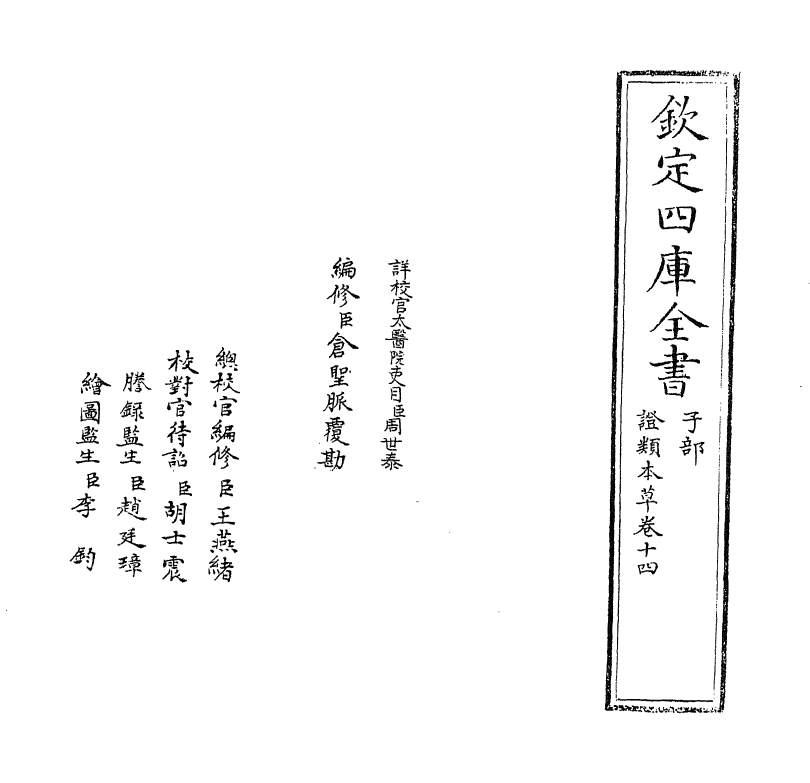 欽定四庫全書
子部
證類本草卷十四
詳校官太醫院吏目臣周世泰
編修臣倉聖脈覆勘
總校官編修臣王燕緒
校對官待詔臣胡士震
謄録監生臣趙廷璋
繪圖監生臣李鈞